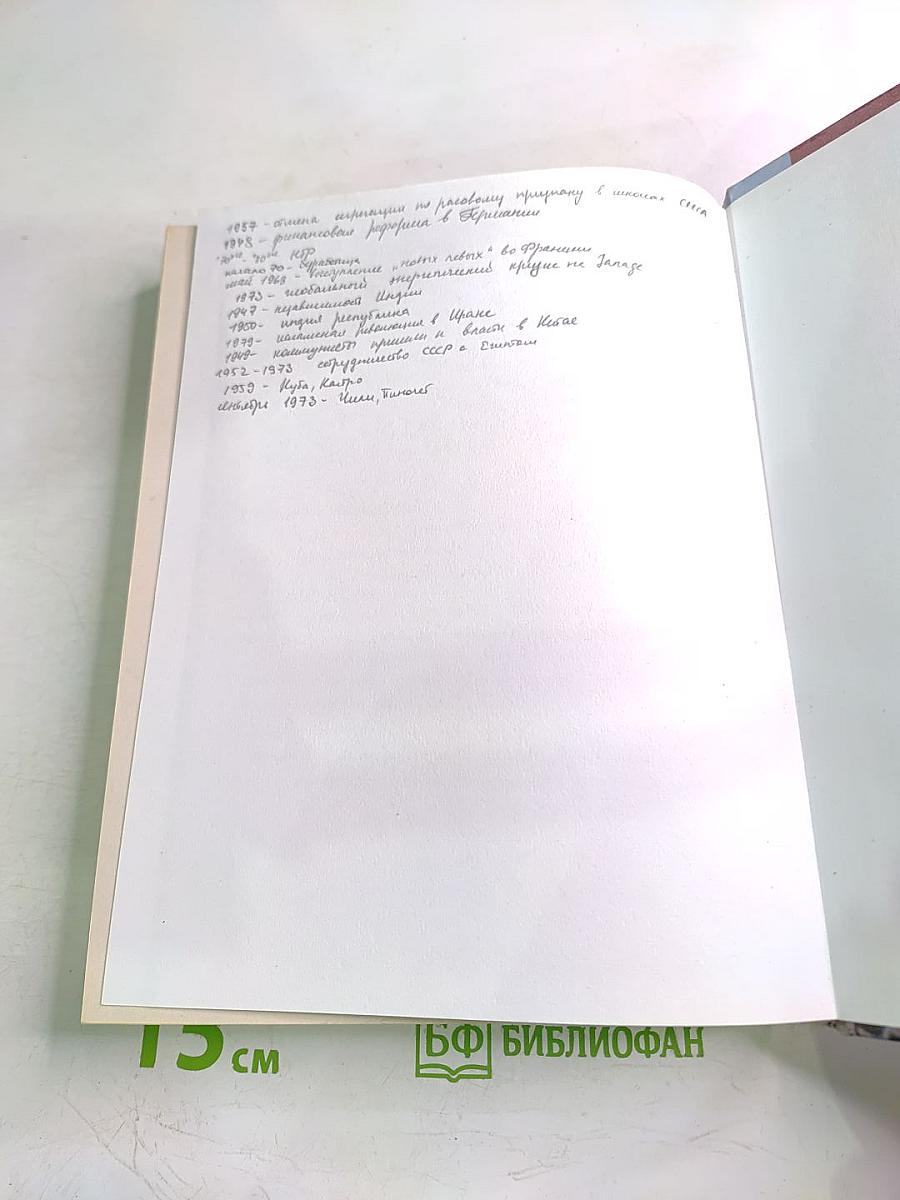 1957 - отмена сегрегации по расовому признаку в школах США
1948 - финансовая реформа в Германии
70ые НТР
начало 70 - безработица
май 1968 - выступление "новых левых" во Франции
1973 - глобальный энергетический кризис на Западе
1947 - независимость Индии
1950 - индия республика
1979 - исламская революция в Иране
1949 - коммунисты пришли к власти в Китае
1952-1973 сотрудничество СССР с Египтом
1959 - Куба, Кастро
сентябрь 1973 - Чили, Пиночет
15 см
БФ БИБЛИОФАН